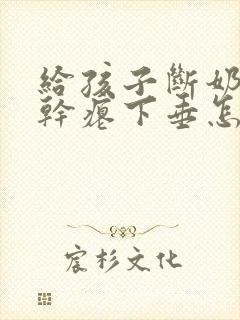 給孩子斷奶
幹癟下垂怎
宸杉文化